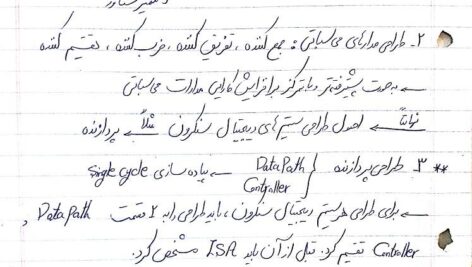 ۲- طراحی مدارهای محاسباتی: جمع کننده ، تفریق کننده ، ضرب کننده ، تقسیم کننده
← به صورت پیشرفته‌تر و با تمرکز بر افزایش کارایی مدارات محاسباتی
نهایتاً ← اصول طراحی سیستم‌های دیجیتال سنکرون مثلاً ← پردازنده
** ۳- طراحی پردازنده { DataPath Controller ← پیاده سازی Single cycle
← برای طراحی هر سیستم دیجیتال سنکرون ، باید طراحی را به ۲ قسمت DataPath و
Controller تقسیم کرد. قبل از آن باید ISA مشخص کرد.